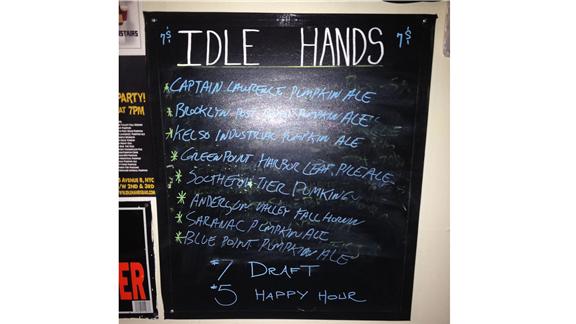 7$ IDLE HANDS 7$
*CAPTAIN LAWRENCE PUMPKIN ALE
*BROOKLYN POST ROAD PUMPKIN ALE
*KELSO INDUSTRIAL PUMPKIN ALE
*GREENPOINT HARBOR LEAF PILE ALE
*SOUTHERN TIER PUMKING
*ANDERSON VALLEY FALL HORNIN
*SARANAC PUMPKIN ALE
*BLUE POINT PUMPKIN ALE
$7 DRAFT
$5 HAPPY HOUR
STAIRS
PARTY!
AT 7PM
AVENUE B, NYC
/W 2ND & 3RD
ER